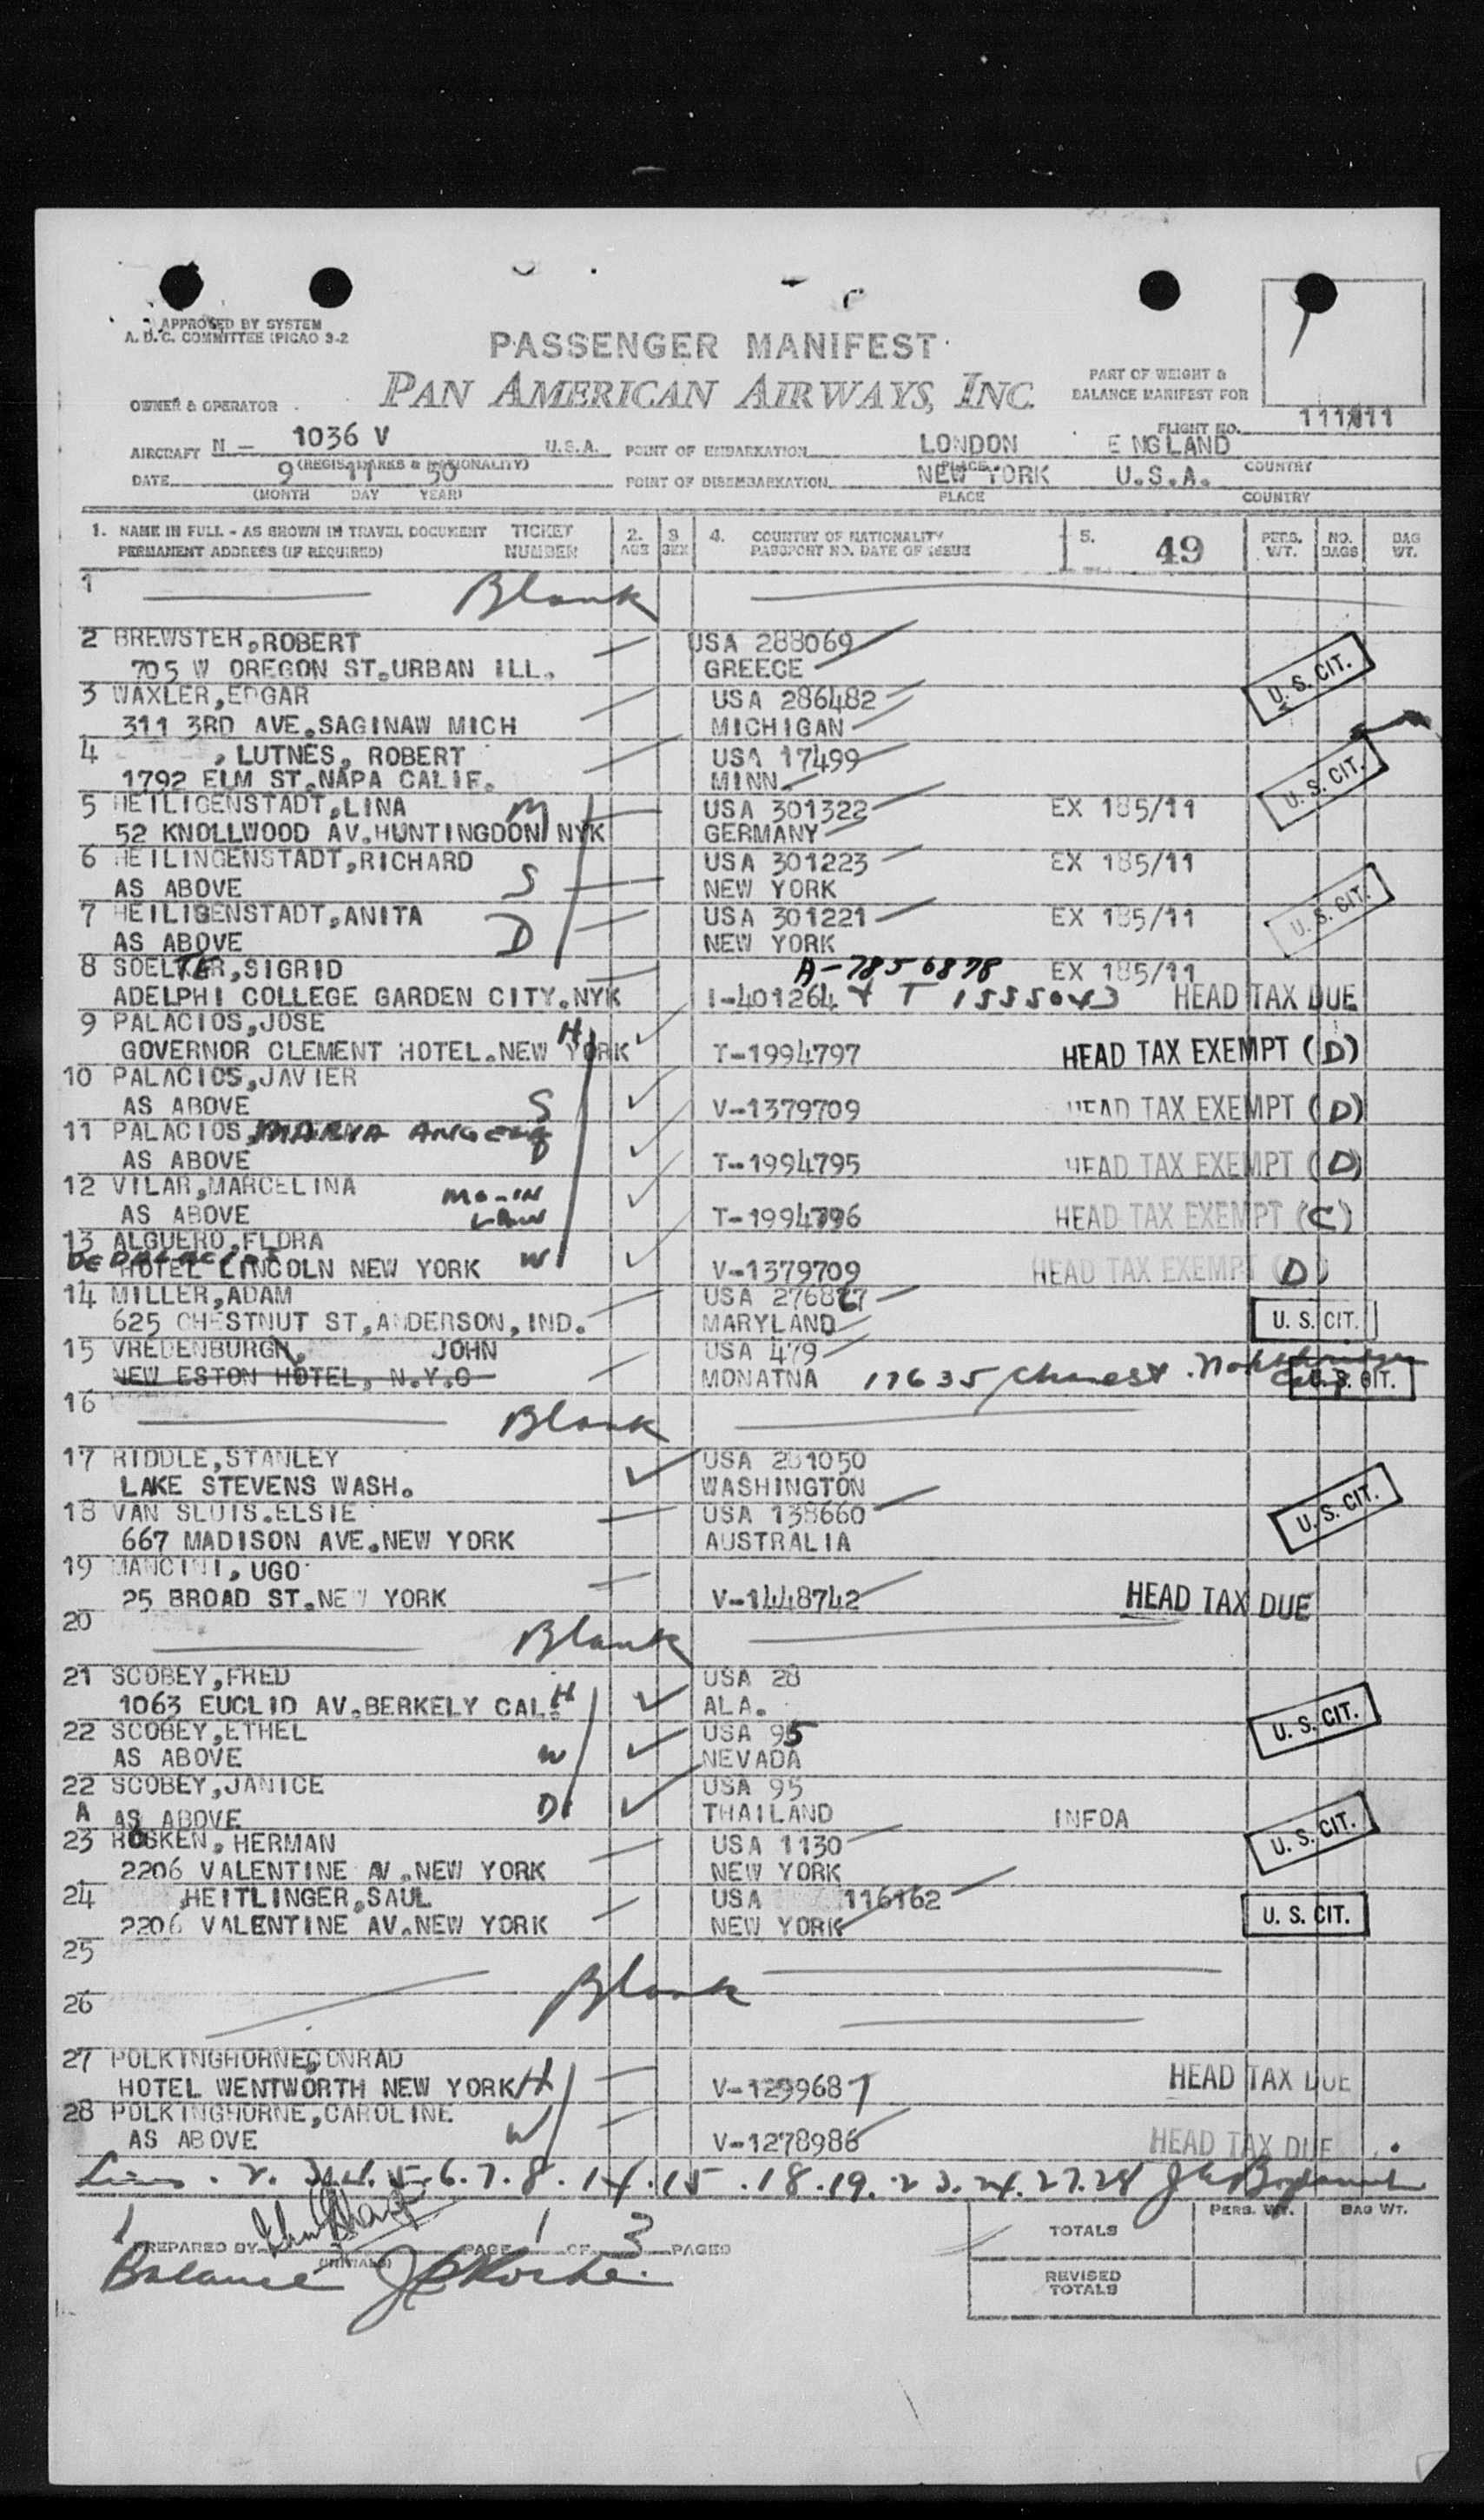 APPROVED BY SYSTEM
A.D.C. COMMITTEE (PICAO 3-2
PASSENGER MANIFEST
PAN AMERICAN AIRWAYS, INC.
PART OF WEIGHT &
BALANCE MANIFEST FOR
OWNER & OPERATOR
FLIGHT NO.
AIRCRAFT N - 1036 V U.S.A. POINT OF EMBARKATION LONDON ENGLAND
(REGIS. MARKS & NATIONALITY) PLACE COUNTRY
DATE 9 11 50 POINT OF DISEMBARKATION NEW YORK U.S.A.
(MONTH DAY YEAR) PLACE COUNTRY
1. NAME IN FULL - AS SHOWN IN TRAVEL DOCUMENT TICKET 2. 3 4. COUNTRY OF NATIONALITY 5. 49 PERS. NO. BAG
PERMANENT ADDRESS (IF REQUIRED) NUMBER AGE SEX PASSPORT NO. DATE OF ISSUE WT. BAGS WT.
1 Blank
2 BREWSTER,ROBERT USA 288069
705 W OREGON ST.URBAN ILL. GREECE U. S. CIT.
3 WAXLER,EDGAR USA 286482
311 3RD AVE.SAGINAW MICH MICHIGAN
4 , LUTNES, ROBERT USA 17499
1792 ELM ST.NAPA CALIF. MINN. U. S. CIT.
5 HEILIGENSTADT,LINA M USA 301322 EX 185/11
52 KNOLLWOOD AV.HUNTINGDON NYK GERMANY
6 HEILINGENSTADT,RICHARD USA 301223 EX 185/11
AS ABOVE S NEW YORK
7 HEILIGENSTADT,ANITA USA 301221 EX 185/11 U. S. CIT.
AS ABOVE D NEW YORK
8 SOELTER,SIGRID A-7856878 EX 185/11
ADELPHI COLLEGE GARDEN CITY.NYK I-401264 & T 1555043 HEAD TAX DUE
9 PALACIOS,JOSE H
GOVERNOR CLEMENT HOTEL.NEW YORK T-1994797 HEAD TAX EXEMPT (D)
10 PALACIOS,JAVIER
AS ABOVE S V-1379709 HEAD TAX EXEMPT (D)
11 PALACIOS, MARIA ANGELA
AS ABOVE D T-1994795 HEAD TAX EXEMPT (D)
12 VILAR,MARCELINA MO-IN
AS ABOVE LAW T-1994796 HEAD TAX EXEMPT (C)
13 ALGUERO,FLORA
DE PALACIOS
HOTEL LINCOLN NEW YORK W V-1379709 HEAD TAX EXEMPT (D)
14 MILLER,ADAM USA 276867
625 CHESTNUT ST,ANDERSON,IND. MARYLAND U. S. CIT.
15 VREDENBURGH, JOHN USA 479
NEW ESTON HOTEL, N.Y.C MONATNA 17635 U. S. CIT.
16 Blank
17 RIDDLE,STANLEY USA 281050
LAKE STEVENS WASH. WASHINGTON
18 VAN SLUIS.ELSIE USA 138660 U. S. CIT.
667 MADISON AVE.NEW YORK AUSTRALIA
19 MANCINI,UGO
25 BROAD ST.NEW YORK V-1448742 HEAD TAX DUE
20 Blank
21 SCOBEY,FRED USA 28
1063 EUCLID AV.BERKELY CAL. H ALA.
22 SCOBEY,ETHEL USA 95 U. S. CIT.
AS ABOVE W NEVADA
22 SCOBEY,JANICE USA 95
A AS ABOVE D THAILAND INFOA
23 ROSKEN, HERMAN USA 1130 U. S. CIT.
2206 VALENTINE AV.NEW YORK NEW YORK
24 ,HEITLINGER,SAUL USA 116162
2206 VALENTINE AV.NEW YORK NEW YORK U. S. CIT.
25
Blank
26
27 POLKINGHORNE,CONRAD
HOTEL WENTWORTH NEW YORK H V-1299687 HEAD TAX DUE
28 POLKINGHORNE,CAROLINE
AS ABOVE W V-1278986 HEAD TAX DUE
Lines . 2. 3.4.5.6.7.8.14.15.18.19.23.24.27.28
PREPARED BY (INITIALS) PAGE 1 OF 3 PAGES
Balance
PERS. WT. BAG WT.
TOTALS
REVISED
TOTALS